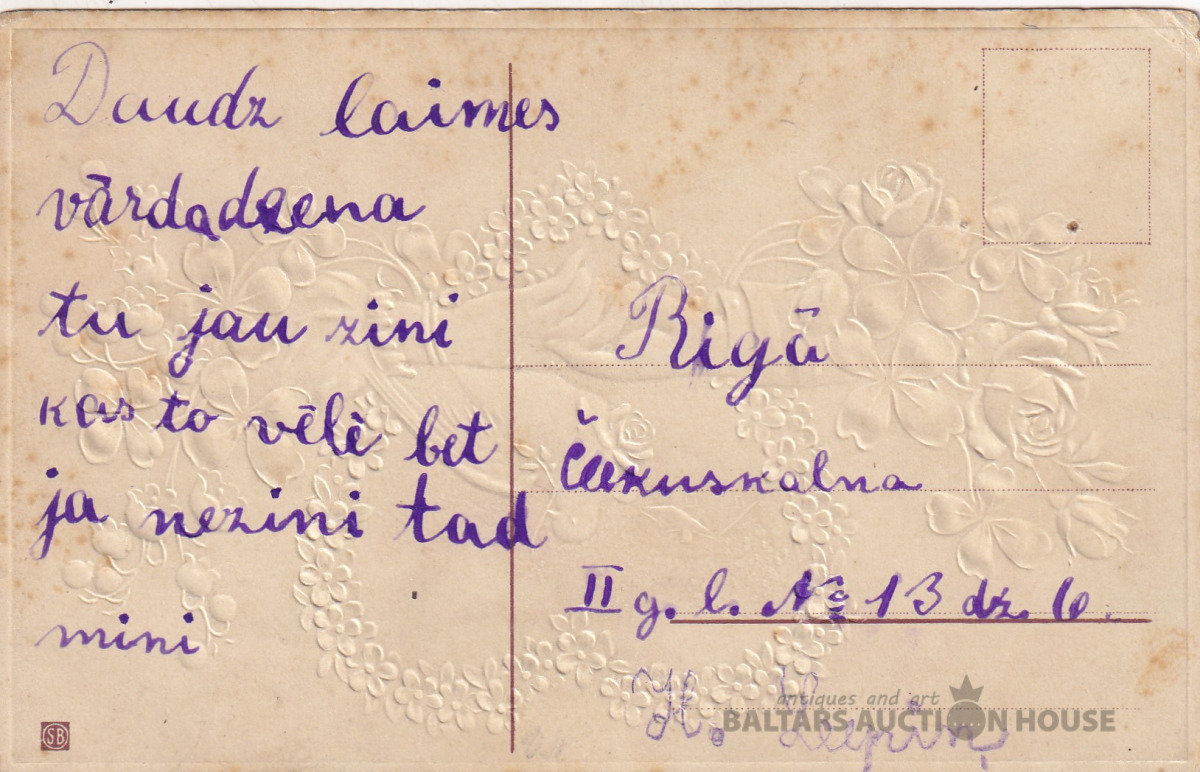 Daudz laimes
vārdadzena
tu jau zini
kas to vēlē bet
ja nezini tad
mini
Rigā
Čeekuskalna
II g. l. № 13 dz. 6.
H.
antiques and art
BALTARS AUCTION HOUSE
SB